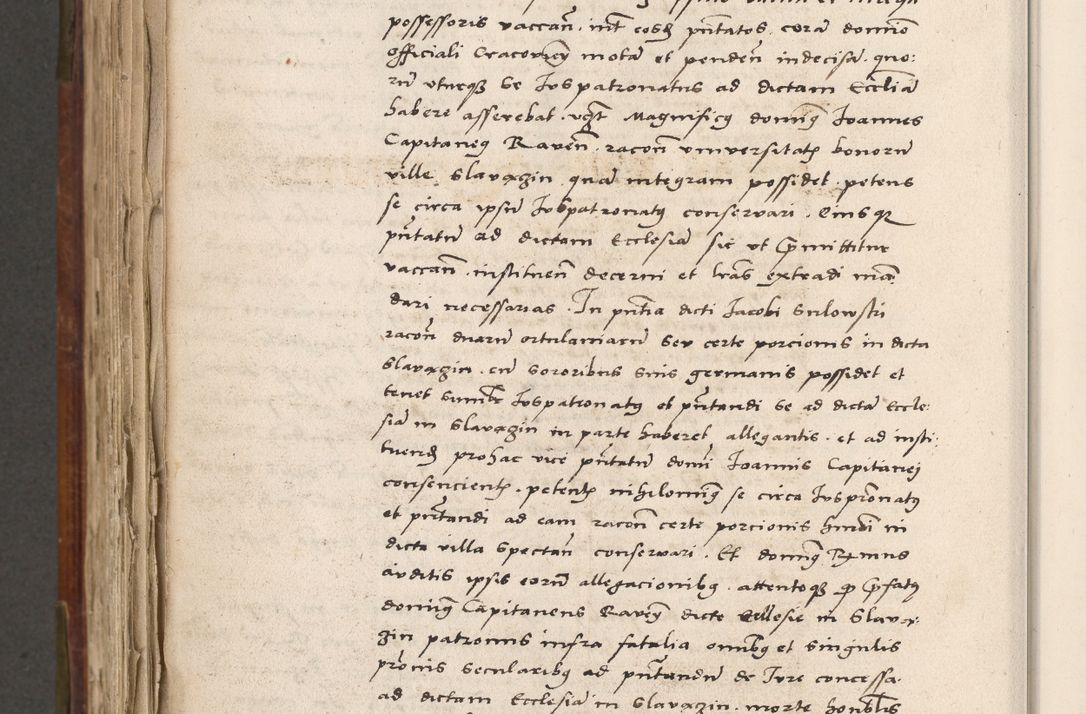 possessoris vaccan̄. int̄ eosd̄ pn̄tatos cora domīo
officiali Cracovien̄ mota et penden̄ indecisa. quo:
rū utrͫqꝫ se Juspatronatus ad dictam Eccliā
habere asserebat. Magnificꝫ dominꝫ Joannes
Capitaneꝫ Raven̄. racon̄ universitatꝫ bonorū
ville Slavoszin quā integram possidet. petens
se circa ipsū Juspatronatꝫ conservari. Eius qꝫ
pn̄tatū ad dictam Ecclesiā sic ut p̄mittitur
vaccan̄. instituen̄ decerni et lrās extradi man
dari necessarias. In pn̄tia dicti Jacobi Sulowski
racon̄ duarū ortulaniarū seu certe porcionis in dicta
Slavoszin. cū sororibus suis germanis possidet et
tenet Juspatronatꝫ et pn̄tandi se ad dictā Eccle:
siā in Slavoszin in parte haberet allegantis. et ad insti:
tuendꝫ pro hac vice pn̄tatū domī Joannis Capitanei
consencientꝫ. petentꝫ nihilominꝫ se circa Juspronatꝫ
et pn̄tandi ad eam racon̄ certe porcionis hmōi in
dicta villa spectan̄ conservari. Et dominꝫ Rꝫmus
auditis ipsis eorū allegacionibꝫ. attentoqꝫ ꝙ p̄fatꝫ
dominꝫ Capitaneus Raven̄ dicte Ecclesie in Slavo:
szin patronus infra fatalia omnibꝫ et singulis
pronis secularibꝫ ad pn̄tandū de Jure concessa
ad dictam Ecclesiā in Slavoszin. morte honblis